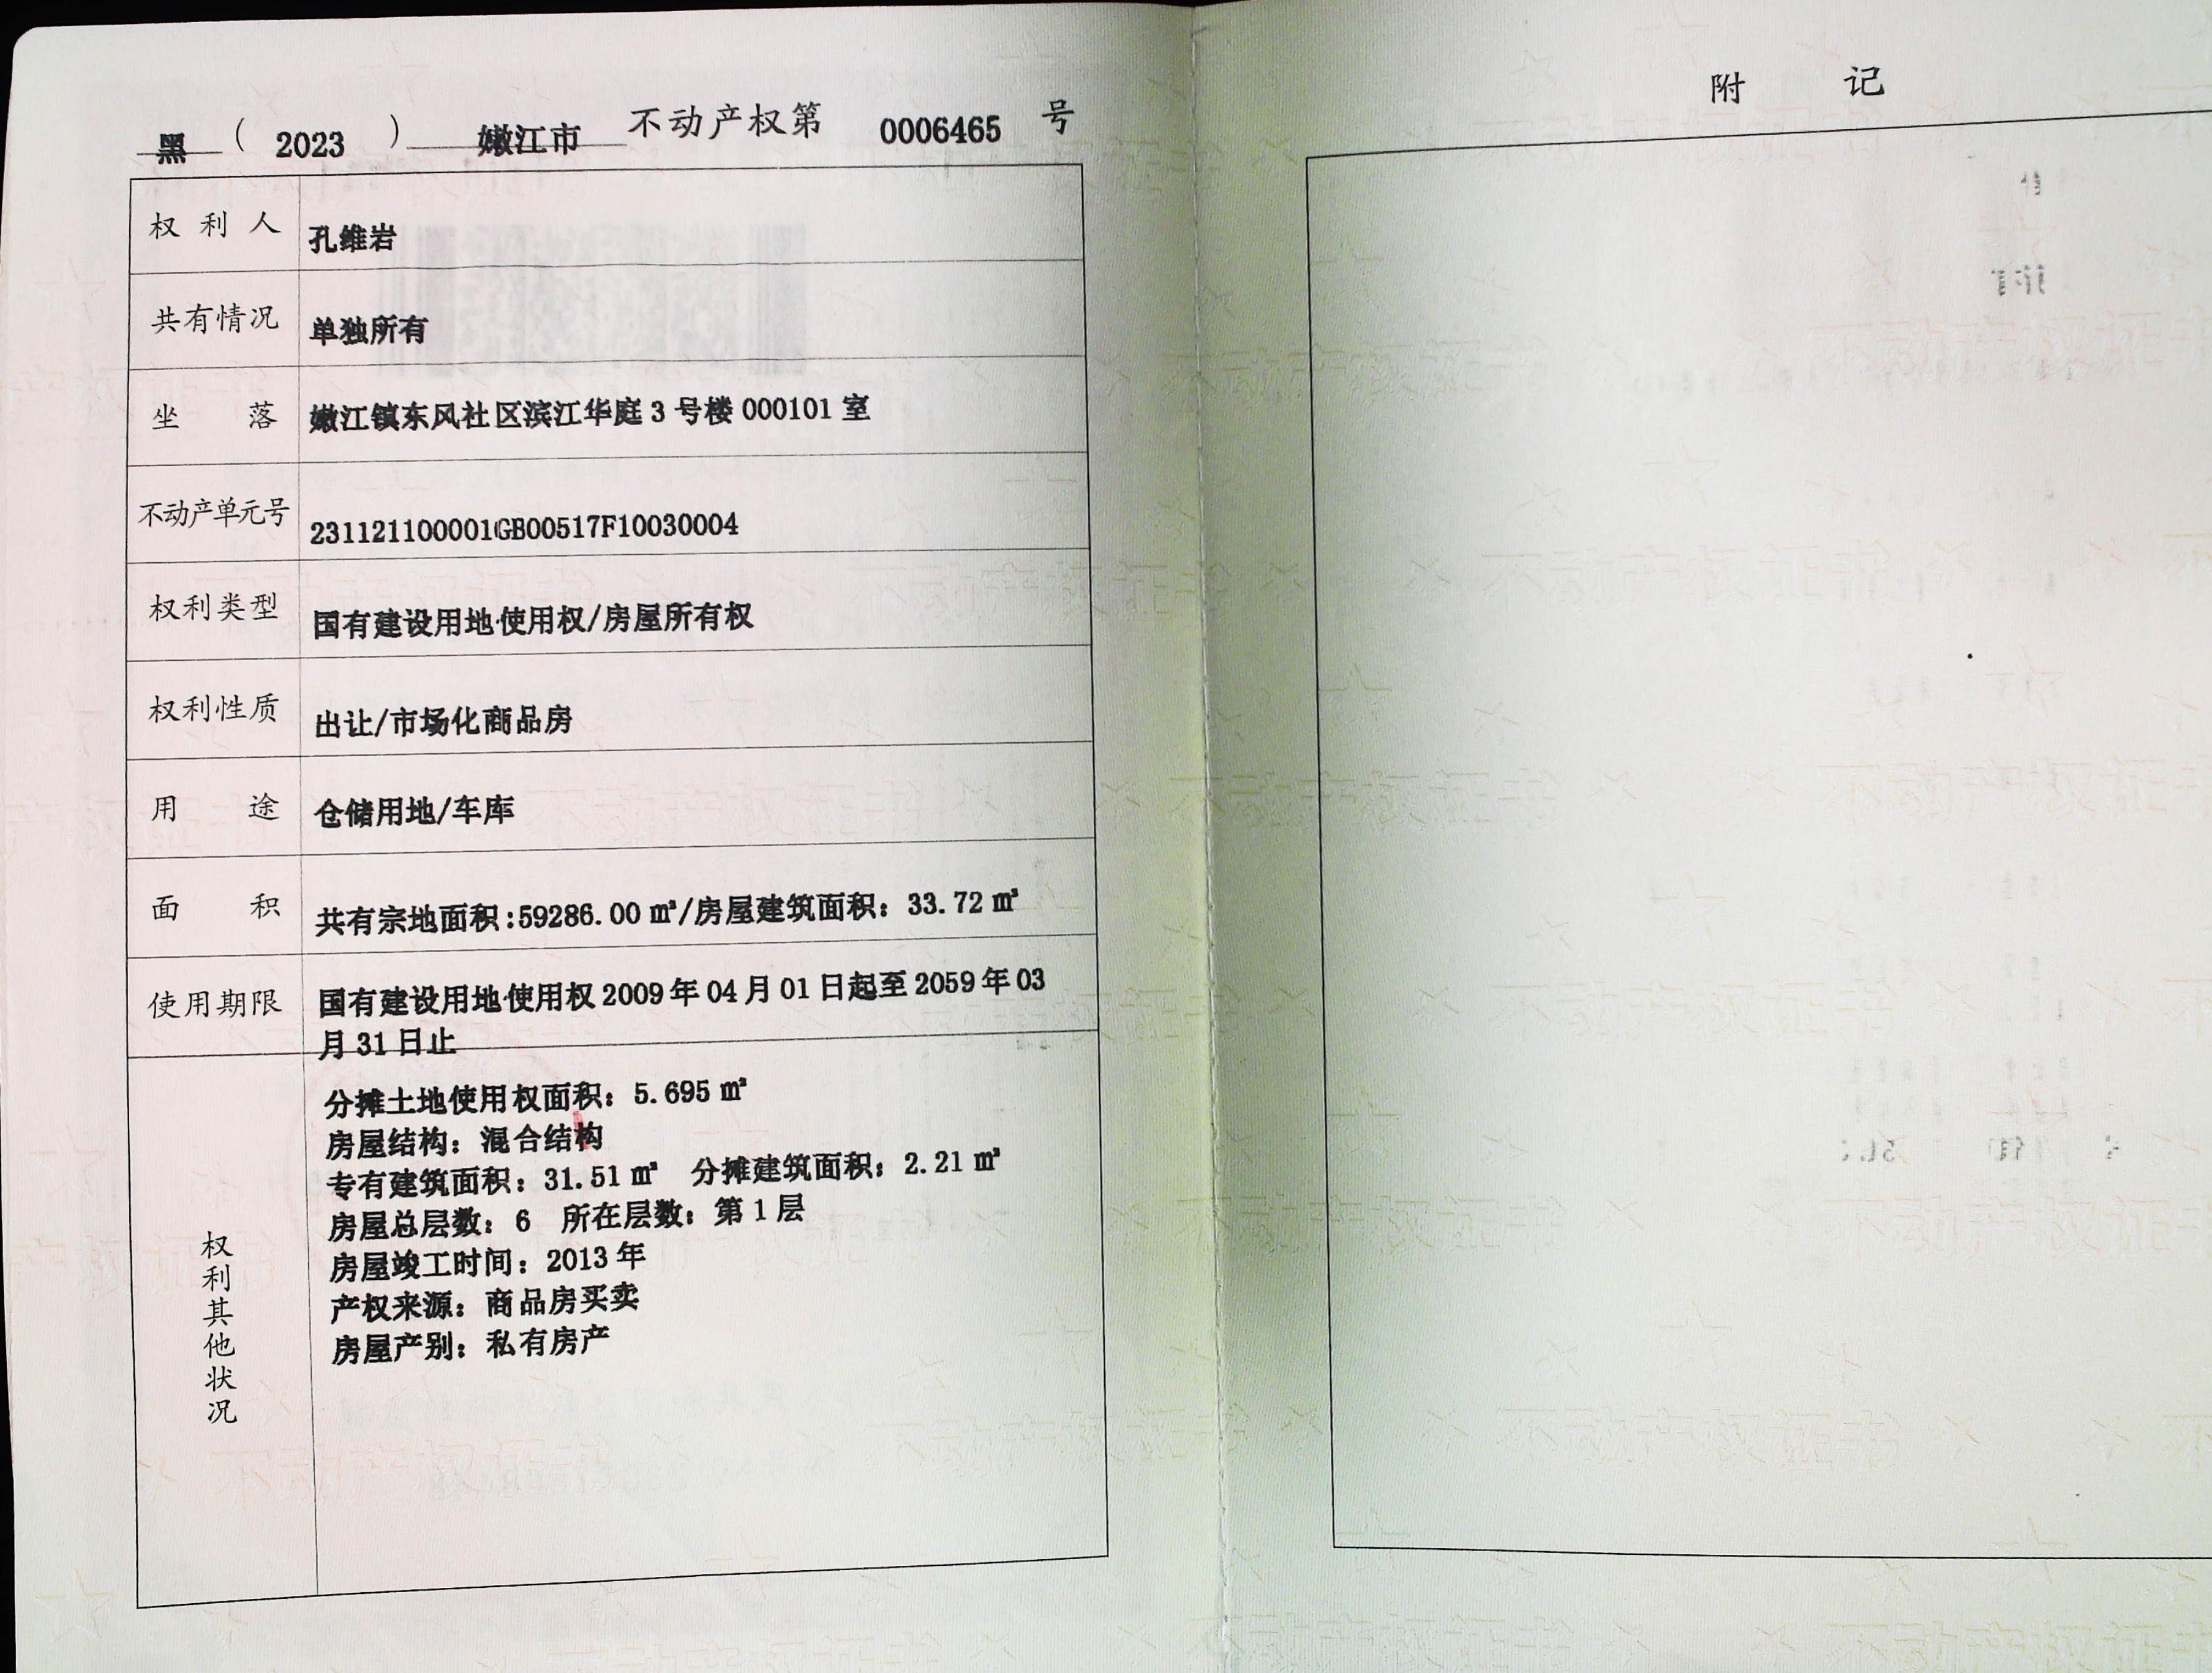 黑 ( 2023 ) 嫩江市 不动产权第 0006465 号
权利人 孔维岩
共有情况 单独所有
坐落 嫩江镇东风社区滨江华庭 3 号楼 000101 室
不动产单元号 231121100001GB00517F10030004
权利类型 国有建设用地使用权/房屋所有权
权利性质 出让/市场化商品房
用途 仓储用地/车库
面积 共有宗地面积:59286.00 ㎡/房屋建筑面积：33.72 ㎡
使用期限 国有建设用地使用权 2009 年 04 月 01 日起至 2059 年 03
月 31 日止
权利其他状况
分摊土地使用权面积：5.695 ㎡
房屋结构：混合结构
专有建筑面积：31.51 ㎡ 分摊建筑面积：2.21 ㎡
房屋总层数：6 所在层数：第 1 层
房屋竣工时间：2013 年
产权来源：商品房买卖
房屋产别：私有房产
附 记